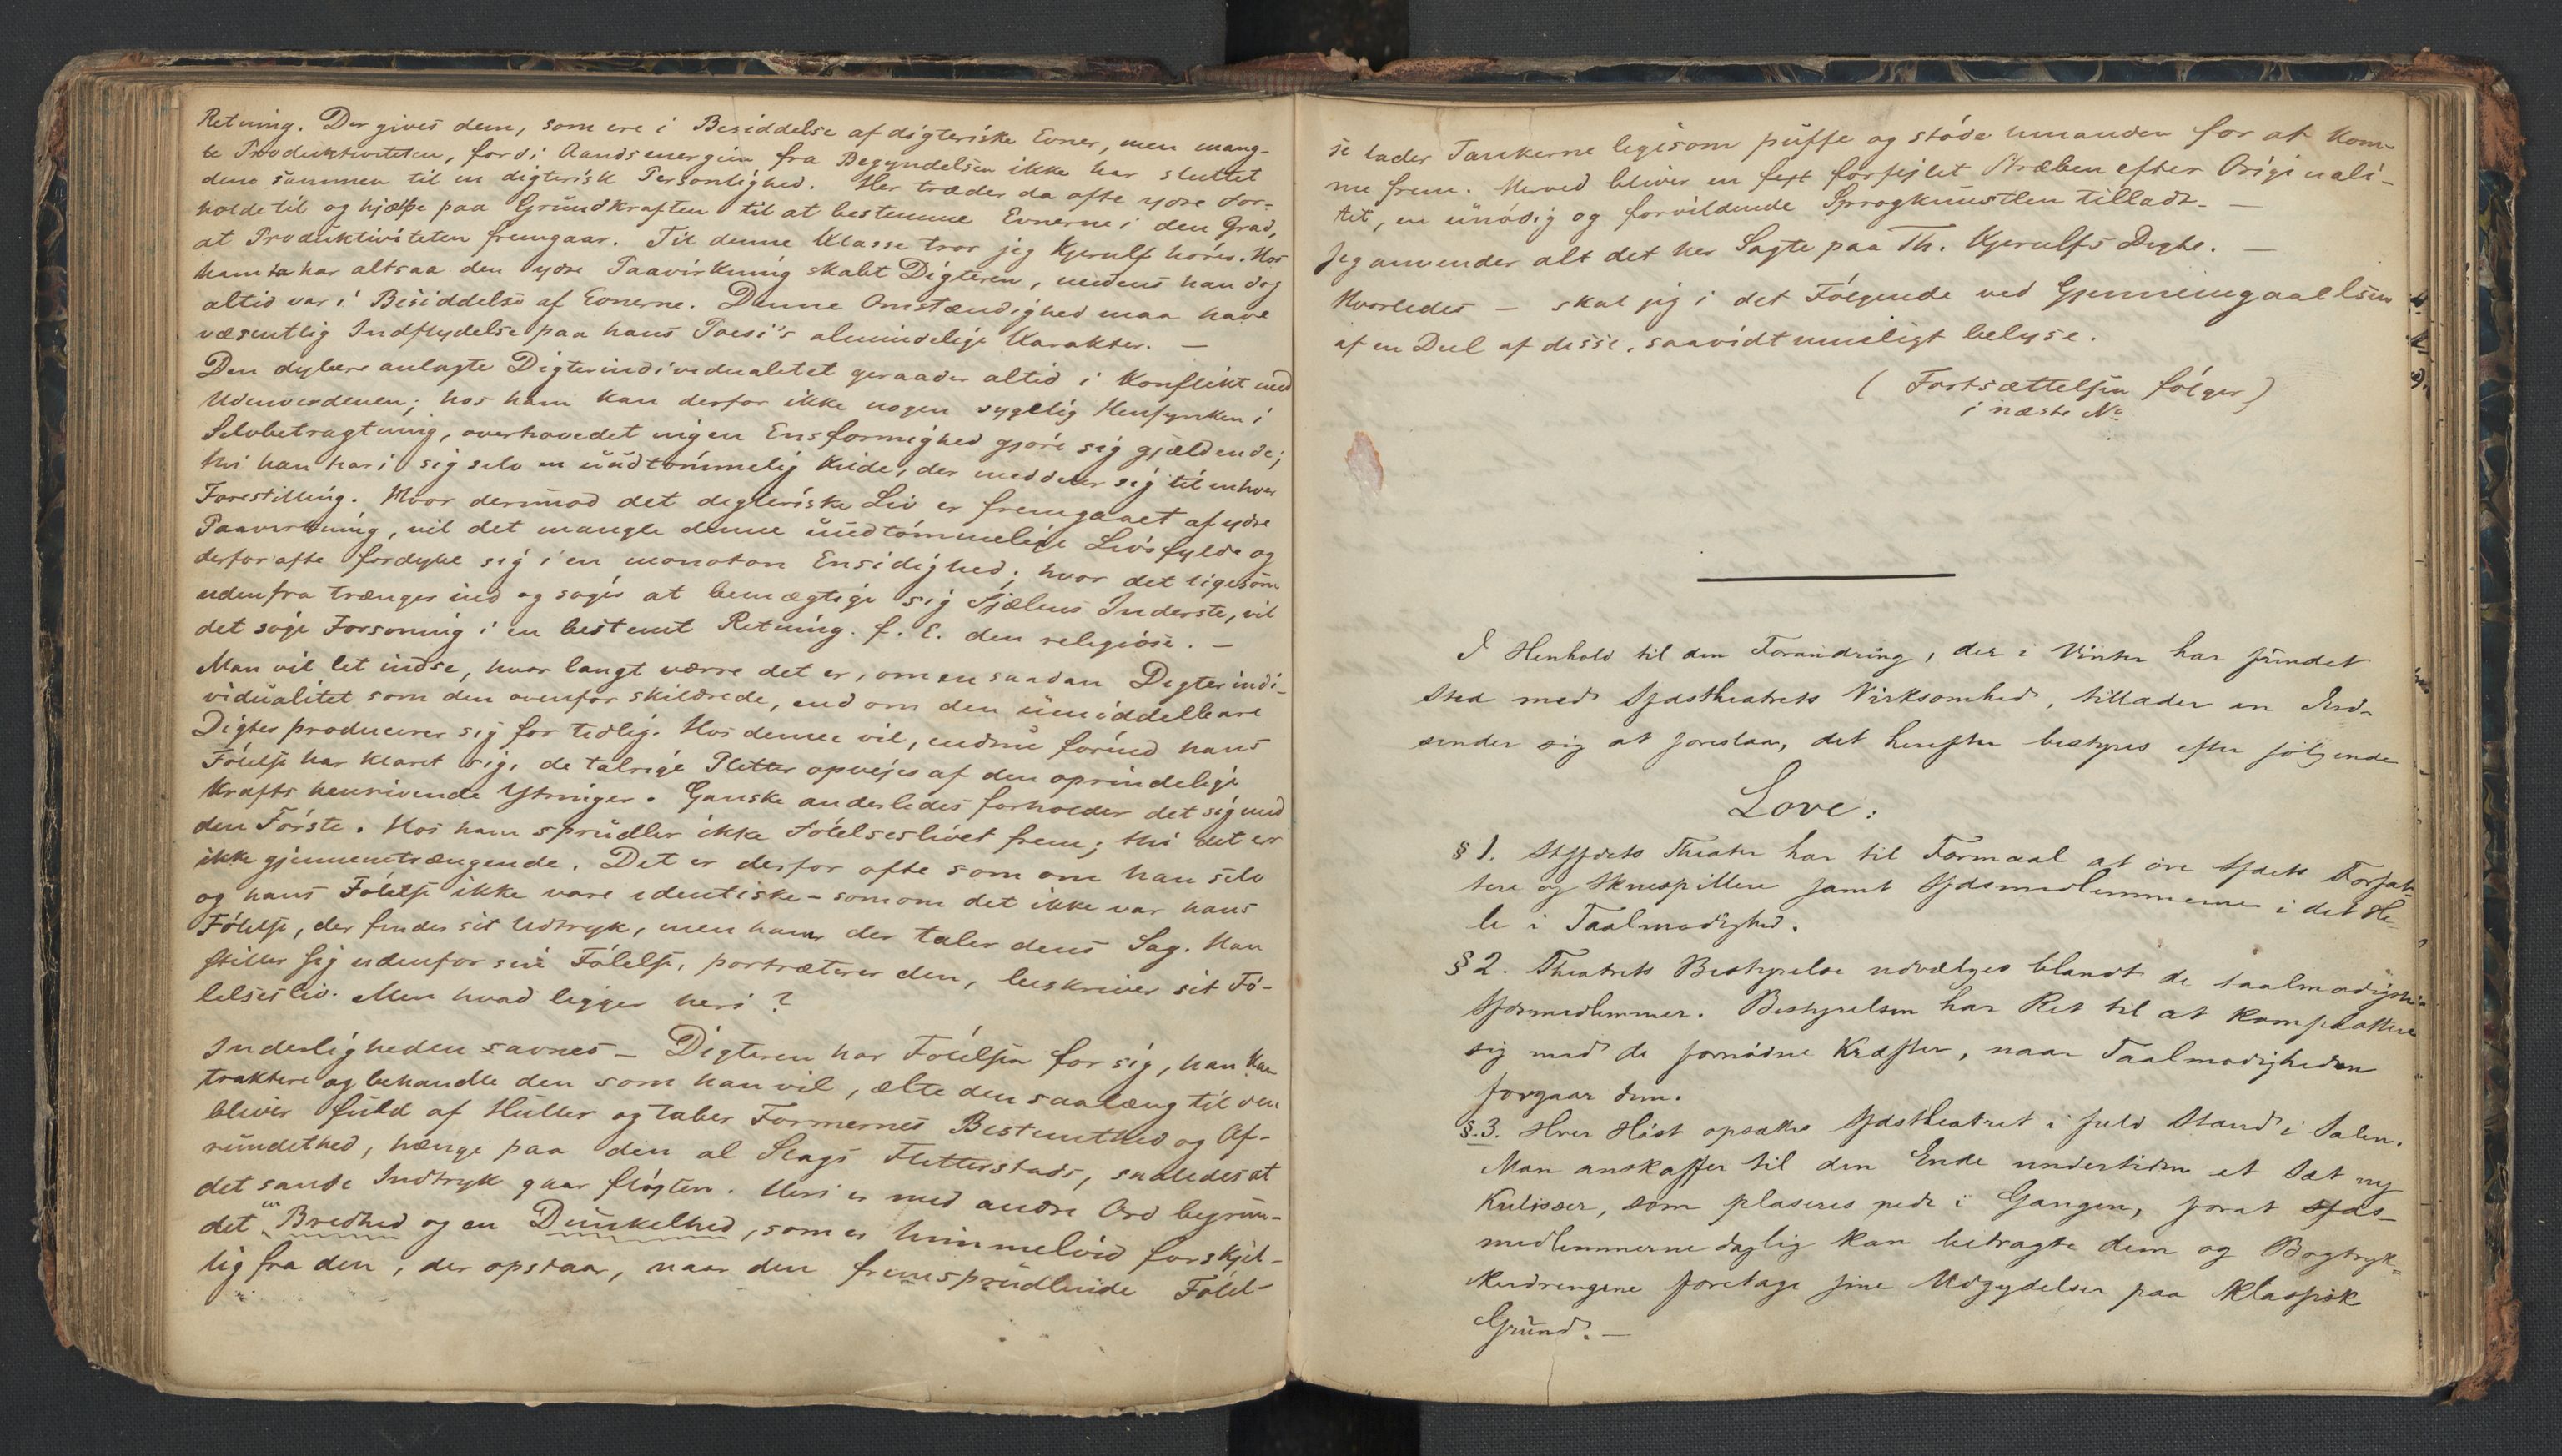 Retning. Der gives dem, som ere i Besiddelse af digteriske Evner, men mang-
le Produktiviteten, fordi Aandsenergien fra Begyndelsen ikke har sluttet
dem sammen til en digterisk Personlighed. Her træder da ofte ydre For-
holde til og hjælpe paa Grundkraften til at bestemme Evnerne i den Grad,
at Produktiviteten fremgaar. Til denne Klasse tror jeg Kjerulf høres. Hos
ham har altsaa den ydre Paavirkning skabt Digteren, medens han dog
altid var i Besiddelse af Evnerne. Denne Omstændighed maa have
væsentlig Indflydelse paa hans Poesi's almindelige Karakter. —
Den dybere anlagte Digterindividualitet geraader altid i Konflikt med
Udenverdenen; hos ham kan derfor ikke nogen sygelig Hensynken i
Selvbetragtning, overhovedet ingen Ensformighed gjøre sig gjældende;
thi han har i sig selv en uudtømmelig Kilde, der meddeler sig til enhver
Forestilling. Hvor derimod det digteriske Liv er fremgaaet af ydre
Paavirkning, vil det mangle denne uudtømmelige Livsfylde og
derfor ofte fordybe sig i en monoton Ensidighed; hvor det ligesom
udenfra trænger ind og søger at bemægtige sig Sjælens Inderste, vil
det søge Forsoning i en bestemt Retning. f. E. den religiøse. —
Man vil let indse, hvor langt værre det er, om en saadan Digterindi-
vidualitet som den ovenfor skildrede, end om den umiddelbare
Digter producerer sig for tidlig. Hos denne vil, endnu førend hans
Følelse har klaret sig, de talrige Pletter opvejes af den oprindelige
Krafts henrivende Ytringer. Ganske anderledes forholder det sig med
den Første. Hos ham sprudler ikke Følelseslivet frem; thi det er
ikke gjennemtrængende. Det er derfor ofte som om han selv
og hans Følelse ikke vare identiske - som om det ikke var hans
Følelse, der finder sit Udtryk, men ham der taler dens Sag. Han
stiller sig udenfor sin Følelse, portræterer den, beskriver sit Fø-
lelsesliv. Men hvad ligger heri?
Inderligheden savnes — Digteren har Følelsen for sig, han kan
traktere og behandle den som han vil, ælte den saalæng til den
bliver fuld af Huller og taber Formernes Bestemthed og Af-
rundethed, hænge paa den al Slags Flitterstads, saaledes at
det sande Indtryk gaar fløyten. Heri er med andre Ord begrun-
det en Bredhed og en Dunkelhed, som er himmelvid forskjel-
lig fra den, der opstaar, naar den fremsprudlende Følel-
se lader Tankerne ligesom puffe og støde hinanden for at kom-
me frem. Herved bliver en forfejlet Stræben efter Originali-
tet, en unødig og forvildende Sprogkunstlen tilladt. —
Jeg anvender alt det her Sagte paa Th. Kjerulfs Digte. —
Hvorledes — skal jeg i det Følgende ved Gjennemgaaelsen
af en Deel af disse, saavidt mueligt belyse.
( Fortsættelsen følger)
i næste No
I Henhold til den Forandring, der i Vinter har fundet
Sted med Sfdstheatrets Virksomhed, tillader en Ind-
sender sig at foreslaa, det herefter bestyres efter følgende
Love:
§ 1. Stfdets Theater har til Formaal at øve Sfdets Forfat-
tere og Skuespillere samt Sfdsmedlemmerne i det He-
le i Taalmodighed.
§ 2. Theatrets Bestyrelse udvælges blandt de taalmodigste
Sfdsmedlemmer. Bestyrelsen har Ret til at komplottere
sig med de fornødne Kræfter, naar Taalmodigheden
forgaar dem.
§.3. Hver Høst opsættes Sfdstheatret i fuld Stand i Salen.
Man anskaffer til den Ende undertiden et Sæt ny
Kulisser, som plaseres nede i Gangen, forat Sfds-
medlemmerne daglig kan betragte dem og Bogtryk-
kerdrengene foretage sine Udgydelser paa klassisk
Grund. —